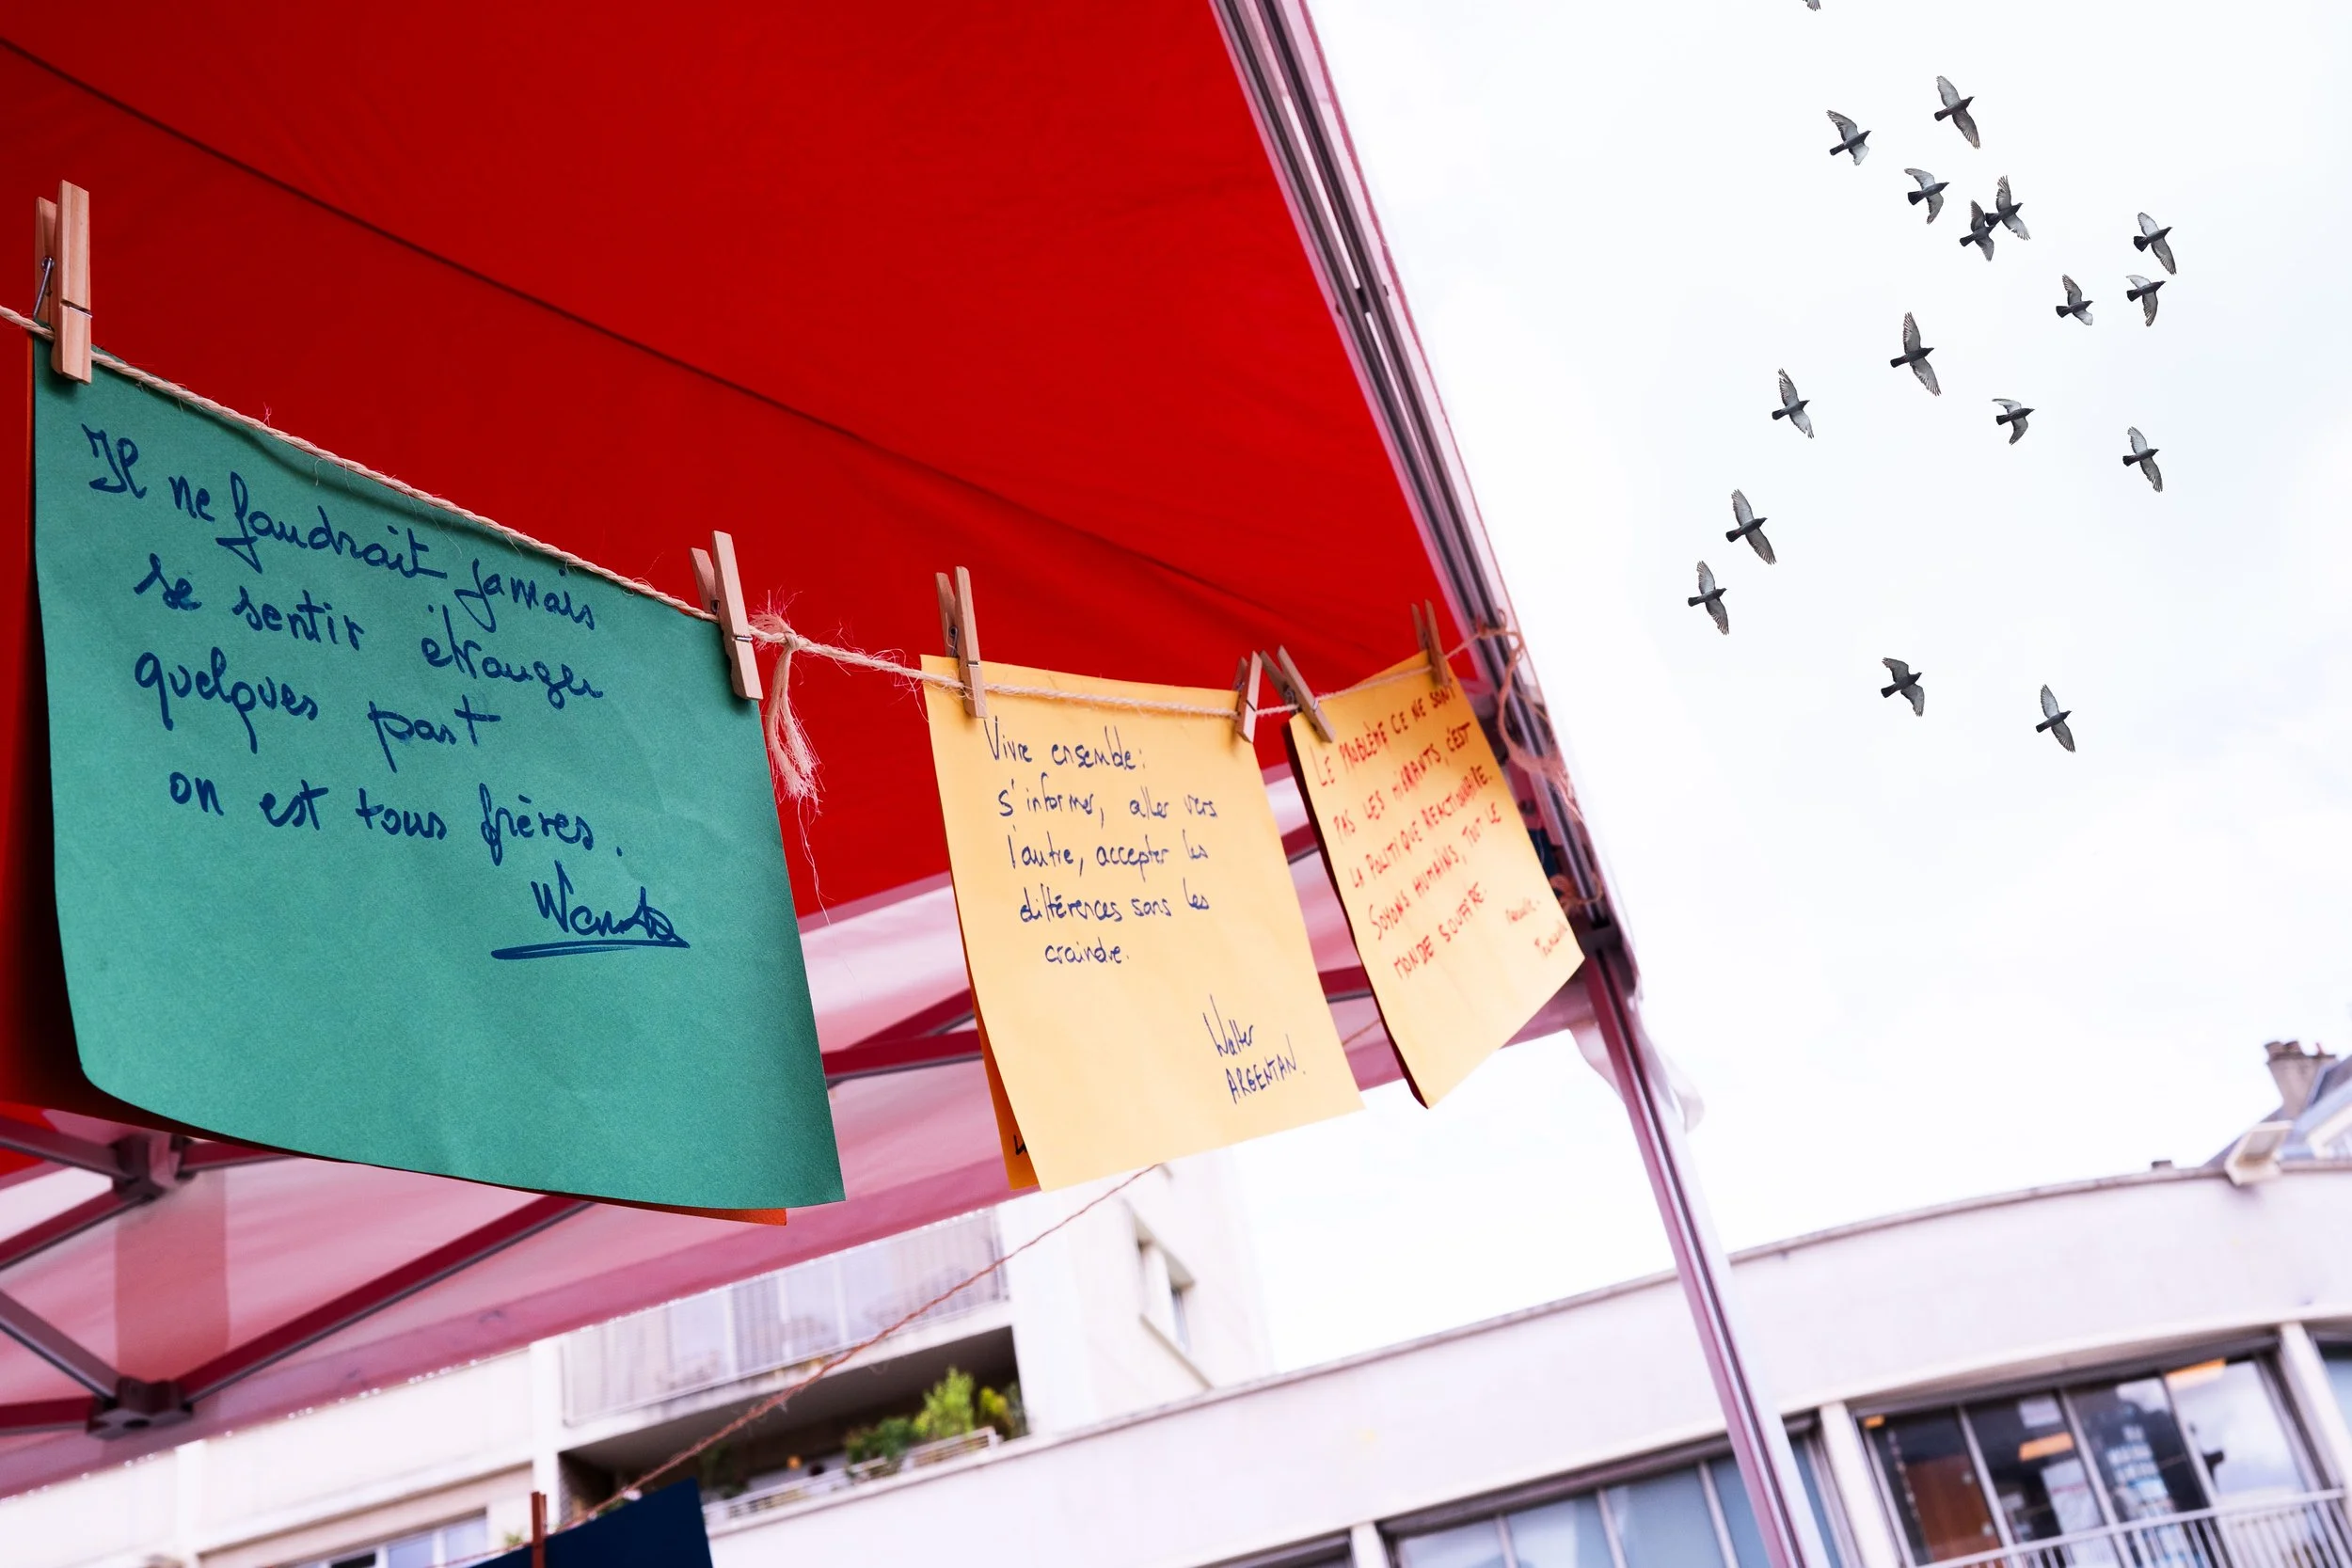 Il ne faudrait jamais
se sentir étranger
quelques part
on est tous frères.
Vivre ensemble:
s'informer, aller vers
l'autre, accepter les
différences sans les
craindre.
Walter
ARGENTAN.
LE PROBLÈME CE NE SONT
PAS LES MIGRANTS, C'EST
LA POLITIQUE REACTIONNAIRE.
SOYONS HUMAINS, TOUT LE
MONDE SOUFFRE.